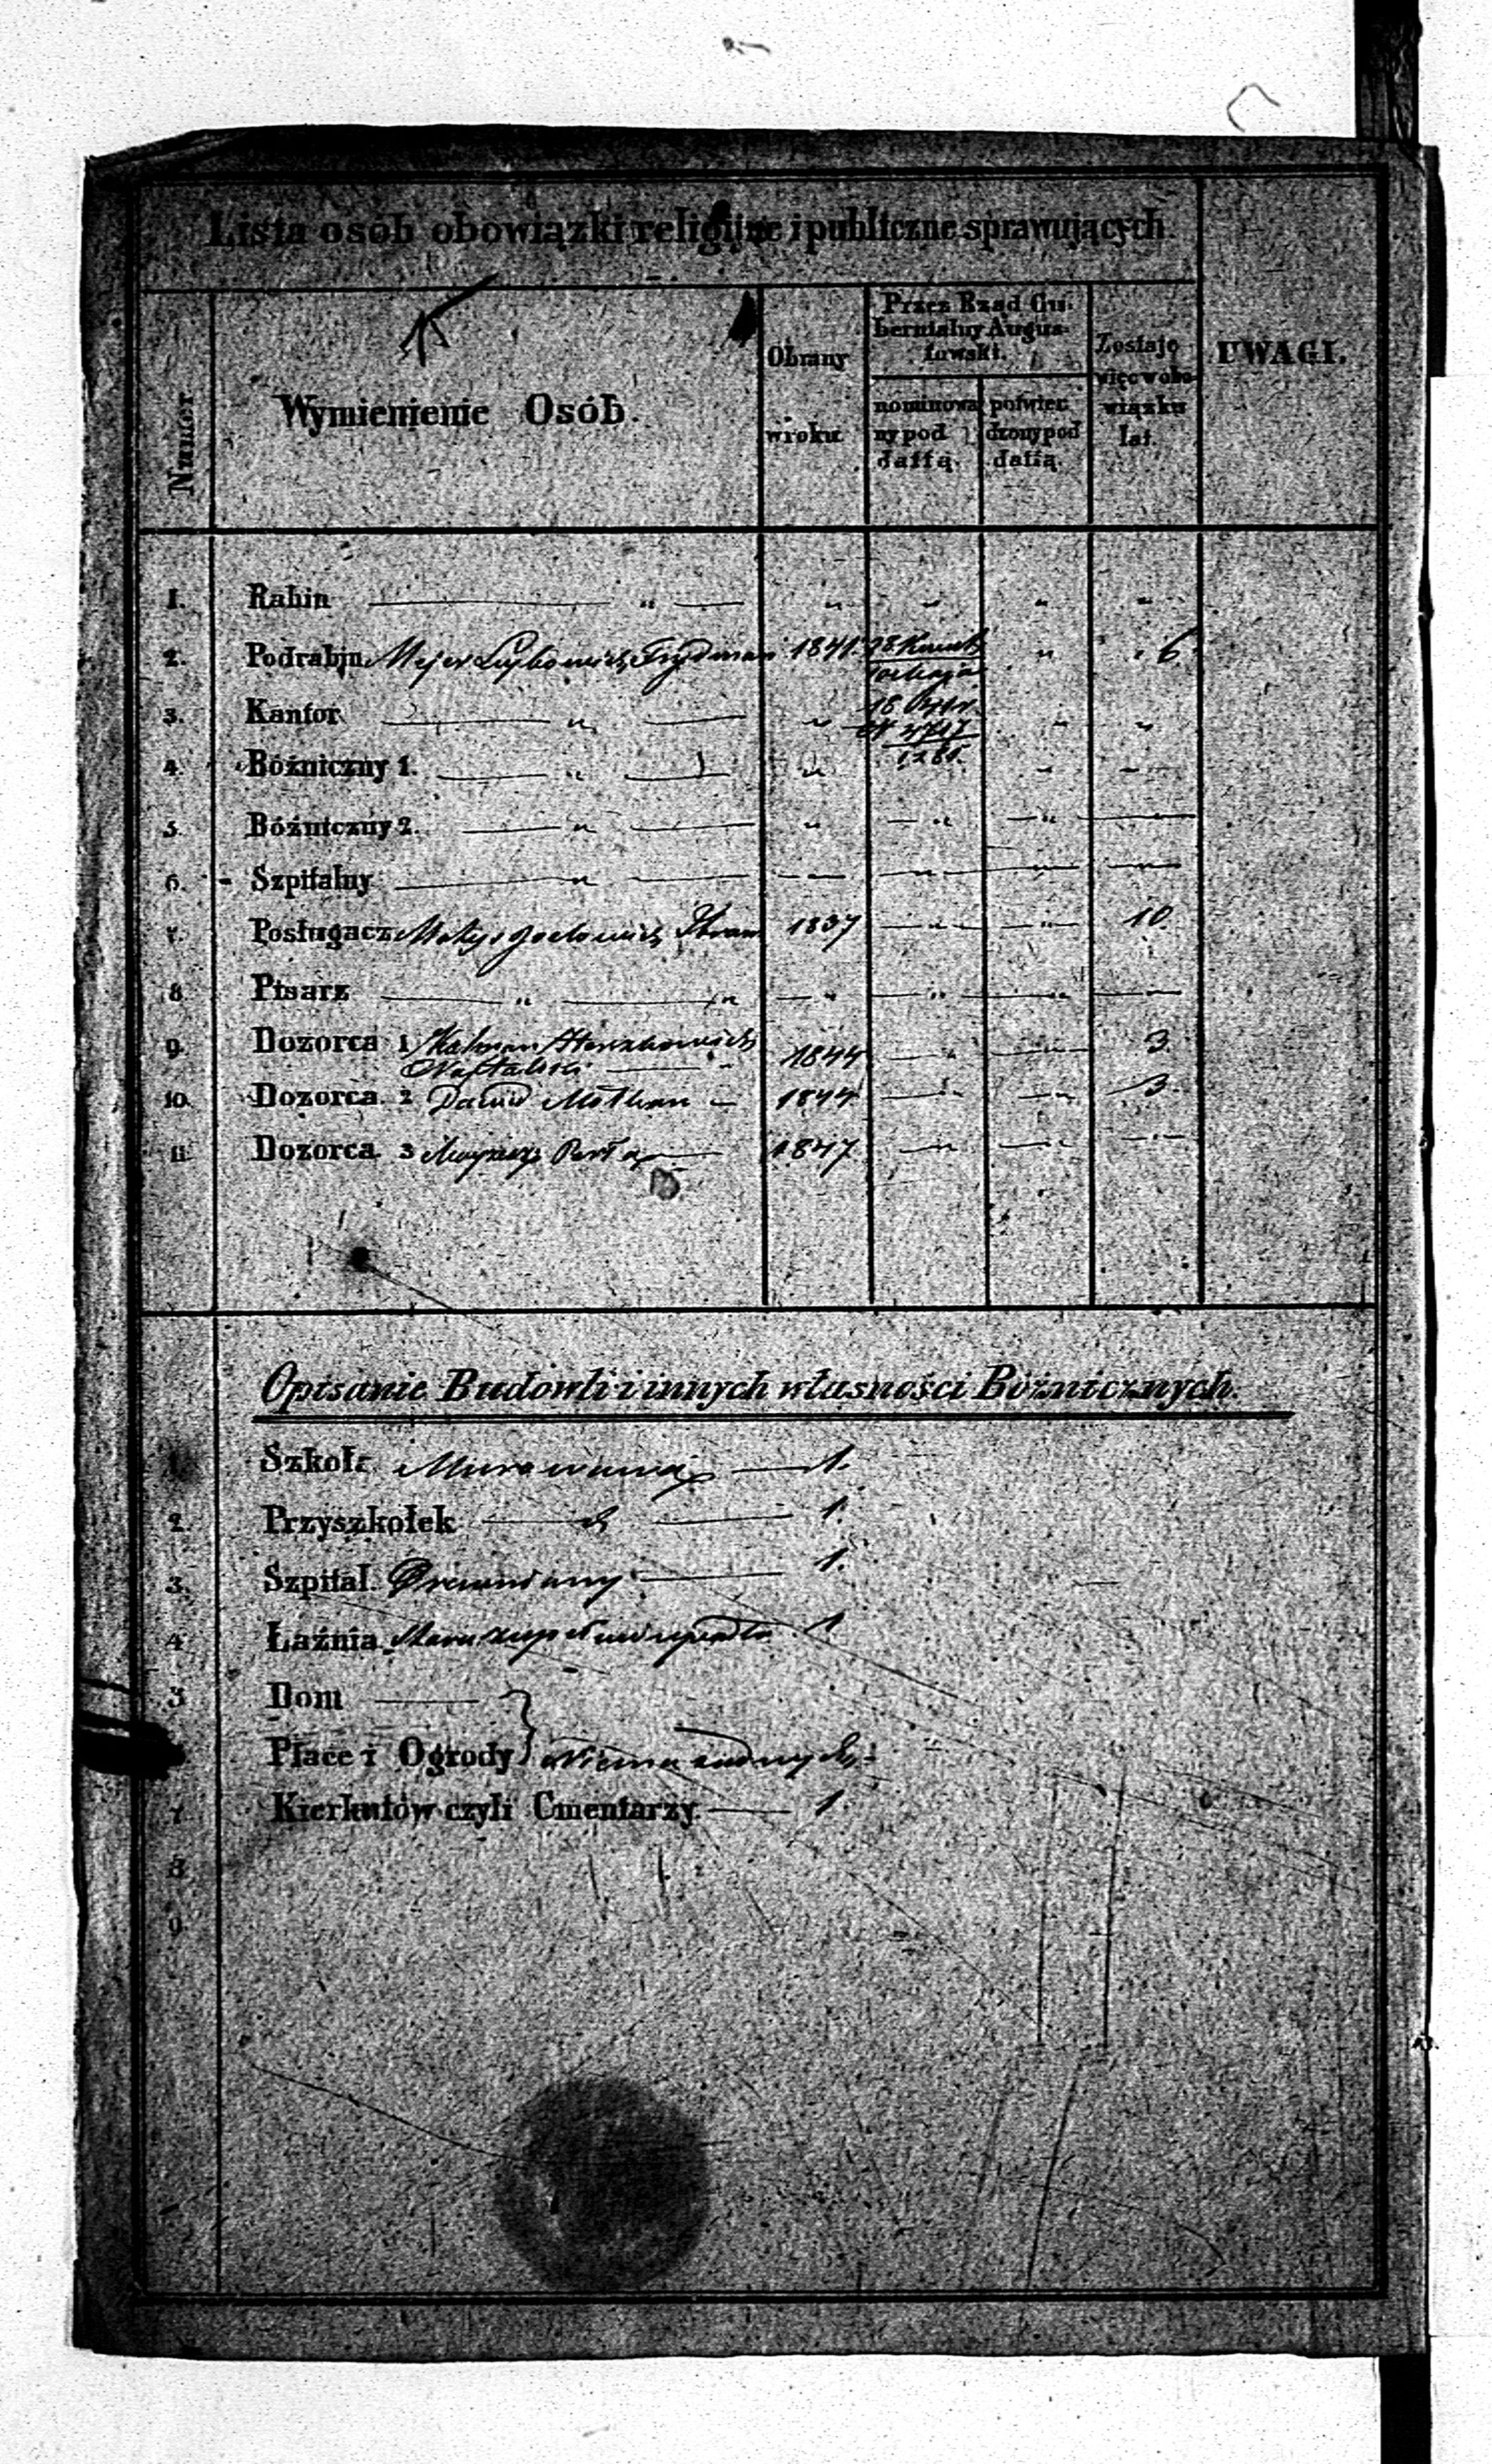 Lista osób obowiązki religijne i publiczne sprawujących.
Numer
Wymienienie Osób.
Obrany
w roku
Przez Rząd Gu-
bernialny Augus-
towski.
nominowa
ny pod
dattą.
potwier
dzony pod
dattą.
Zostaje
więc w obo
wiązku
lat.
UWAGI.
1. Rabin — " — " " " "
2. Podrabin. Mejer Frydman 1841. 28 " 6.
3. Kantor — " — " 18 " "
4717
4. Bóżniczny 1. — " — " " —
5. Bóżniczny 2. — " — " — " — " —
6. Szpitalny — " — — — — " — — —
7. Posługacz 1837 — " — — " — 10
8. Pisarz — " — " — " — " — — " — —
9. Dozorca 1 Kalman Herszkowicz
Naftalski — " 1844 — " — — 3.
10. Dozorca 2 Dawid — 1844 — " — " 3.
11. Dozorca 3 1847 — " — " — " —
Opisanie Budowli i innych własności Bóżnicznych.
1. Szkoła Murowana — 1.
2. Przyszkołek — — 1.
3. Szpital. Drewniany — 1.
4. Łaźnia 1
5 Dom —
6 Place i Ogrody } Niema żadnych
7. Kierkutów czyli Cmentarzy — 1.
8
9.